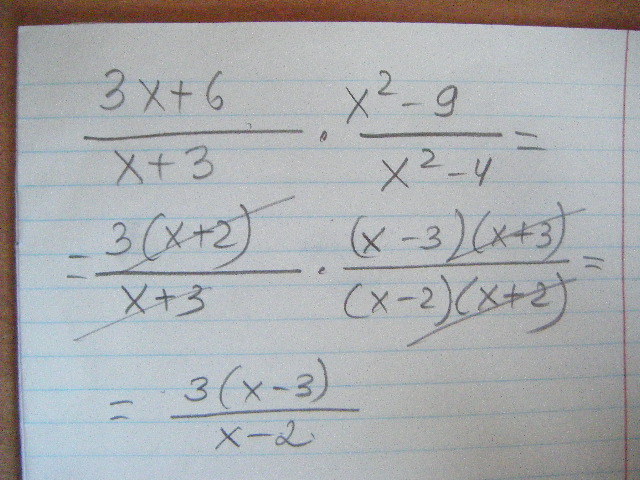 3x+6 / x+3 · x²-9 / x²-4 =
= 3(x+2) / x+3 · (x-3)(x+3) / (x-2)(x+2) =
= 3(x-3) / x-2